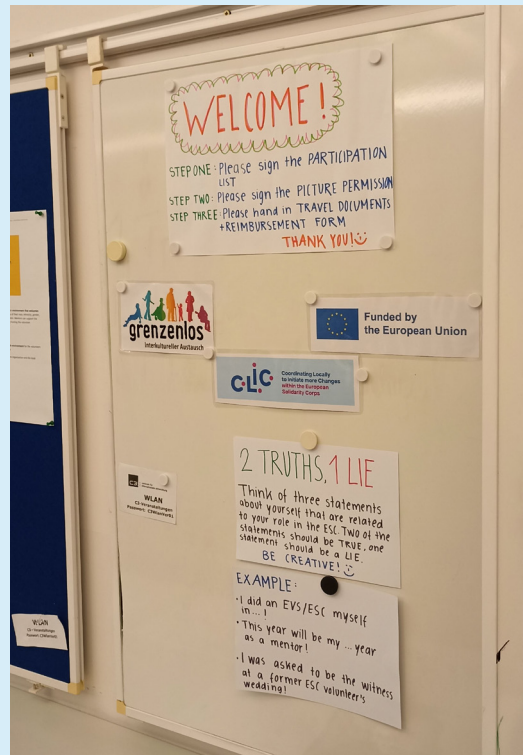 WELCOME!
STEP ONE: Please sign the PARTICIPATION
LIST
STEP TWO: Please sign the PICTURE PERMISSION
STEP THREE: Please hand in TRAVEL DOCUMENTS
+REIMBURSEMENT FORM
THANK YOU!
grenzenlos
Interkultureller Austausch
Funded by
the European Union
CLIC
Coordinating Locally
to Initiate more Changes
within the European
Solidarity Corps
2 TRUTHS, 1 LIE
Think of three statements
about yourself that are related
to your role in the ESC. Two of the
statements should be TRUE, one
statement should be a LIE.
BE CREATIVE!
EXAMPLE:
• I did an EVS/ESC myself
in...!
• This year will be my ... year
as a mentor!
• I was asked to be the witness
at a former ESC volunteer's
wedding!
C3
WLAN
C3-Veranstaltungen
WLAN